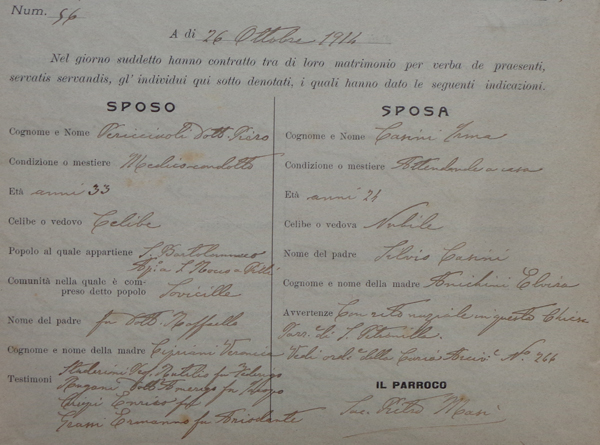 Num. 56
A di 26 Ottobre 1914
Nel giorno suddetto hanno contratto tra di loro matrimonio per verba de praesenti,
servatis servandis, gl' individui qui sotto denotati, i quali hanno dato le seguenti indicazioni.
SPOSO
Cognome e Nome Pericciuoli Dott. Piero
Condizione o mestiere Medico condotto
Età anni 33
Celibe o vedovo Celibe
Popolo al quale appartiene S. Bartolommeo
a S. Rocco a Pilli
Comunità nella quale è com-
preso detto popolo Sovicille
Nome del padre fu Dott. Raffaello
Cognome e nome della madre Cipriani Veronica
Testimoni Prof. Natalio fu
Dott. Amerigo fu
Enrico fu
Grassi Ermanno fu Ariodante
SPOSA
Cognome e Nome Casini Irma
Condizione o mestiere Attendente a casa
Età anni 24
Celibe o vedova Nubile
Nome del padre Silvio Casini
Cognome e nome della madre Anichini Elvira
Avvertenze Con rito nuziale in questa Chiesa
Parr. di S. Petronilla.
Vedi ord. della Curia Arciv. No. 266
IL PARROCO
Sac. Pietro Masi